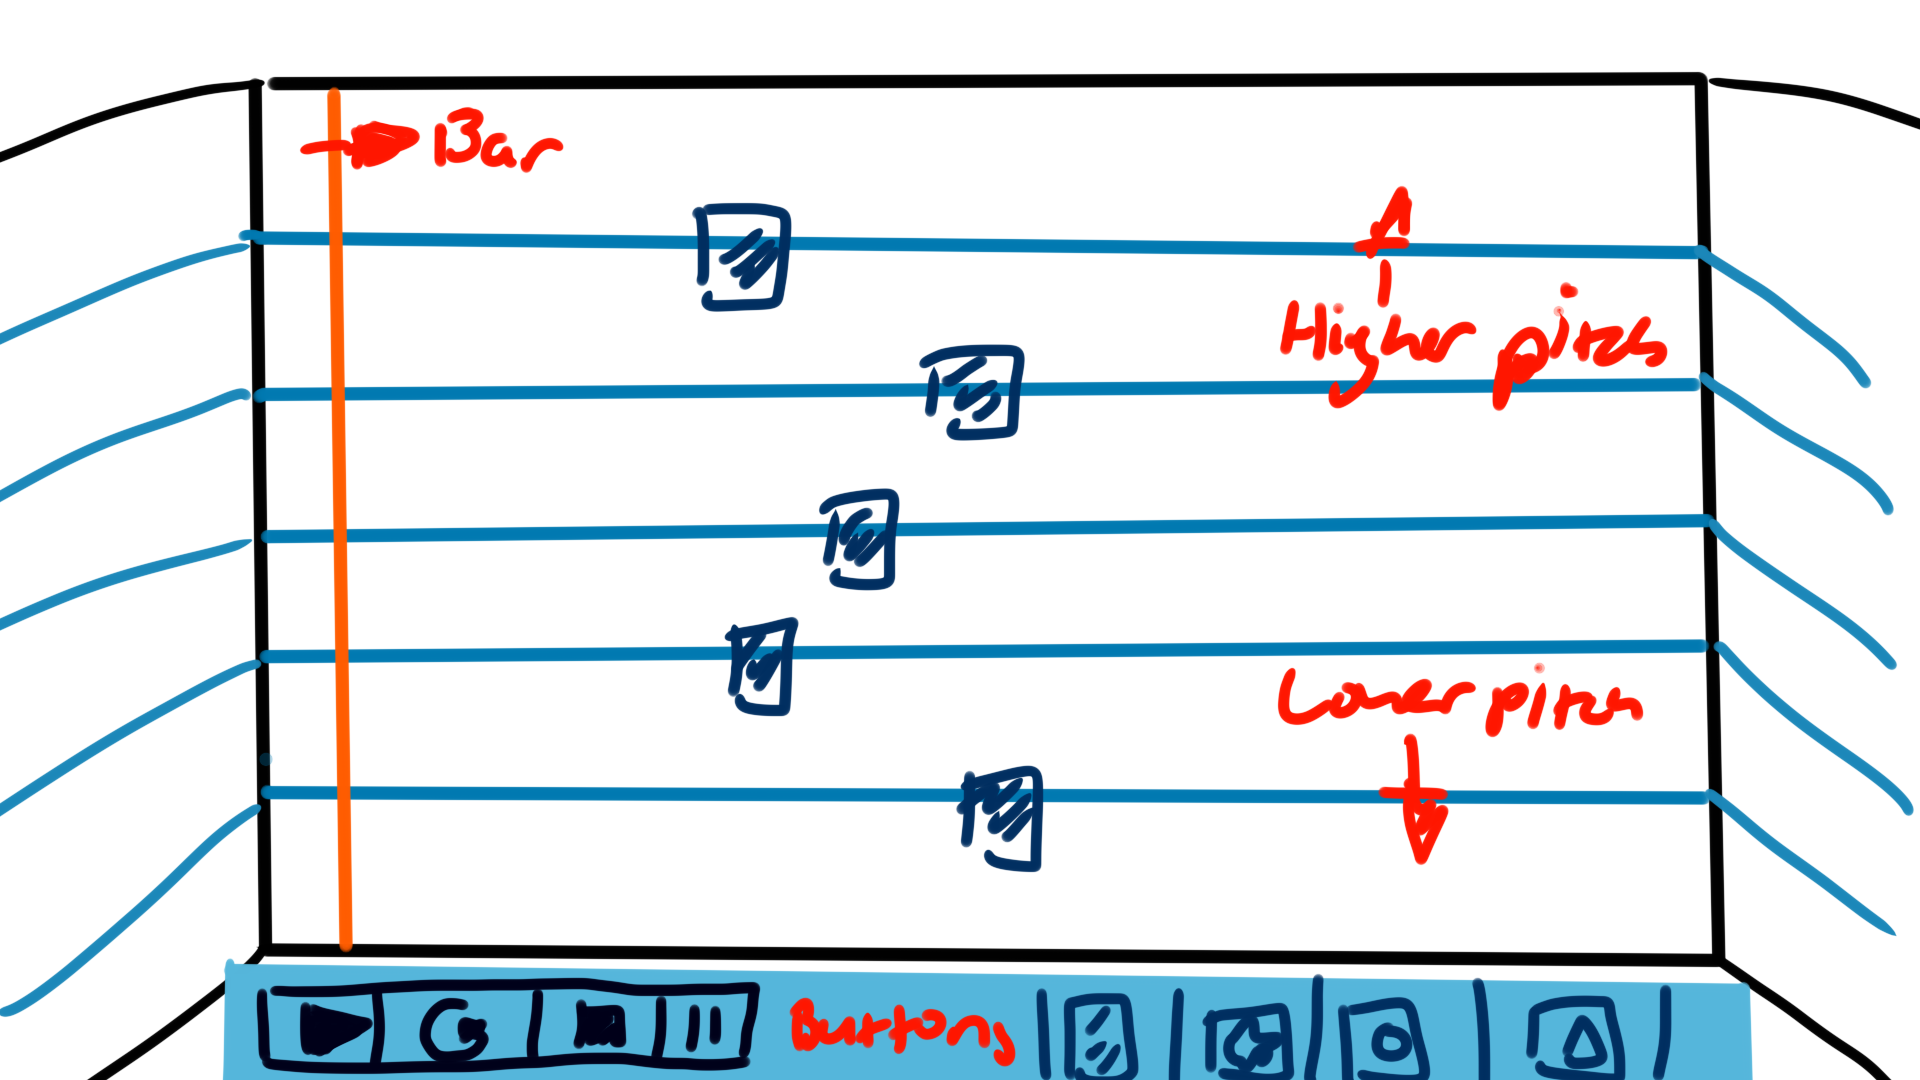 Bar
Higher pitch
Lower pitch
Buttons